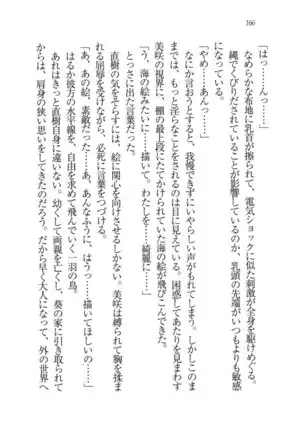 166
「はっ……んっ……」
なめらかな布地に乳首が擦られて、電気ショックに似た刺激が全身を駆けめぐる。
縄でくびりだされていることが影響しているのか、乳頭の先端がいつもよりも敏感
になっている。
「やめ……あんっ……」
なにか言おうとすると、我慢できずにいやらしい声がもれてしまう。しかしこのま
までは、もっと淫らなことをされるのは目に見えている。困惑してあたりを見まわす
美咲の視界に、棚の最上段にたてかけられている海の絵が飛びこんできた。
「う、海の絵みたいに……描いて、わたしを……綺麗に……」
とっさに出た言葉だった。
直樹の気をそらすには、絵に関心を向けさせるしかない。美咲は縛られて胸を揉ま
れる屈辱を受けながら、必死に言葉をつづける。
「あ、あの絵、素敵だった……あ、あんなふうに、はうっ……描いてほしいの……」
はるか彼方の水平線を、自由を求めて飛んでいく一羽の鳥。
あれはきっと直樹自身に違いない。幼くして両親を亡くし、葵の家に引き取られて
から、肩身の狭い思いをしてきたのだろう。だから早く大人になって、外の世界へ